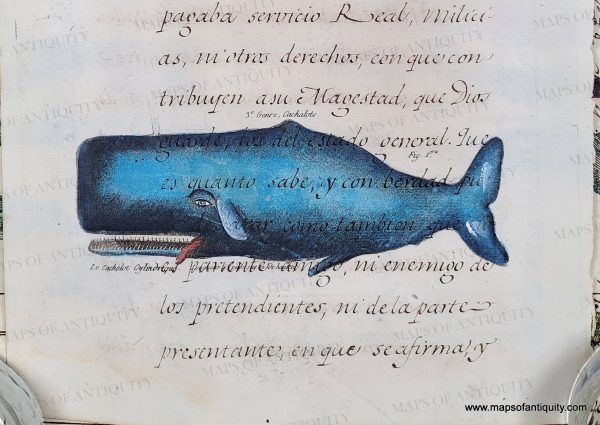 pagaba servicio Real, milici
as, ni otros derechos, con que con
tribuyen a su Magestad, que Dios
3e. Genre, Cachalots.
guarde, los del estado general. Que
Fig. 1re.
es quanto sabe, y con berdad pu
como tambien que
Le Cachalot Cylindrique
pariente, amigo, ni enemigo de
los pretendientes, ni de la parte
presentante, en que se afirma, y
www.mapsofantiquity.com
MAPS OF ANTIQUITY